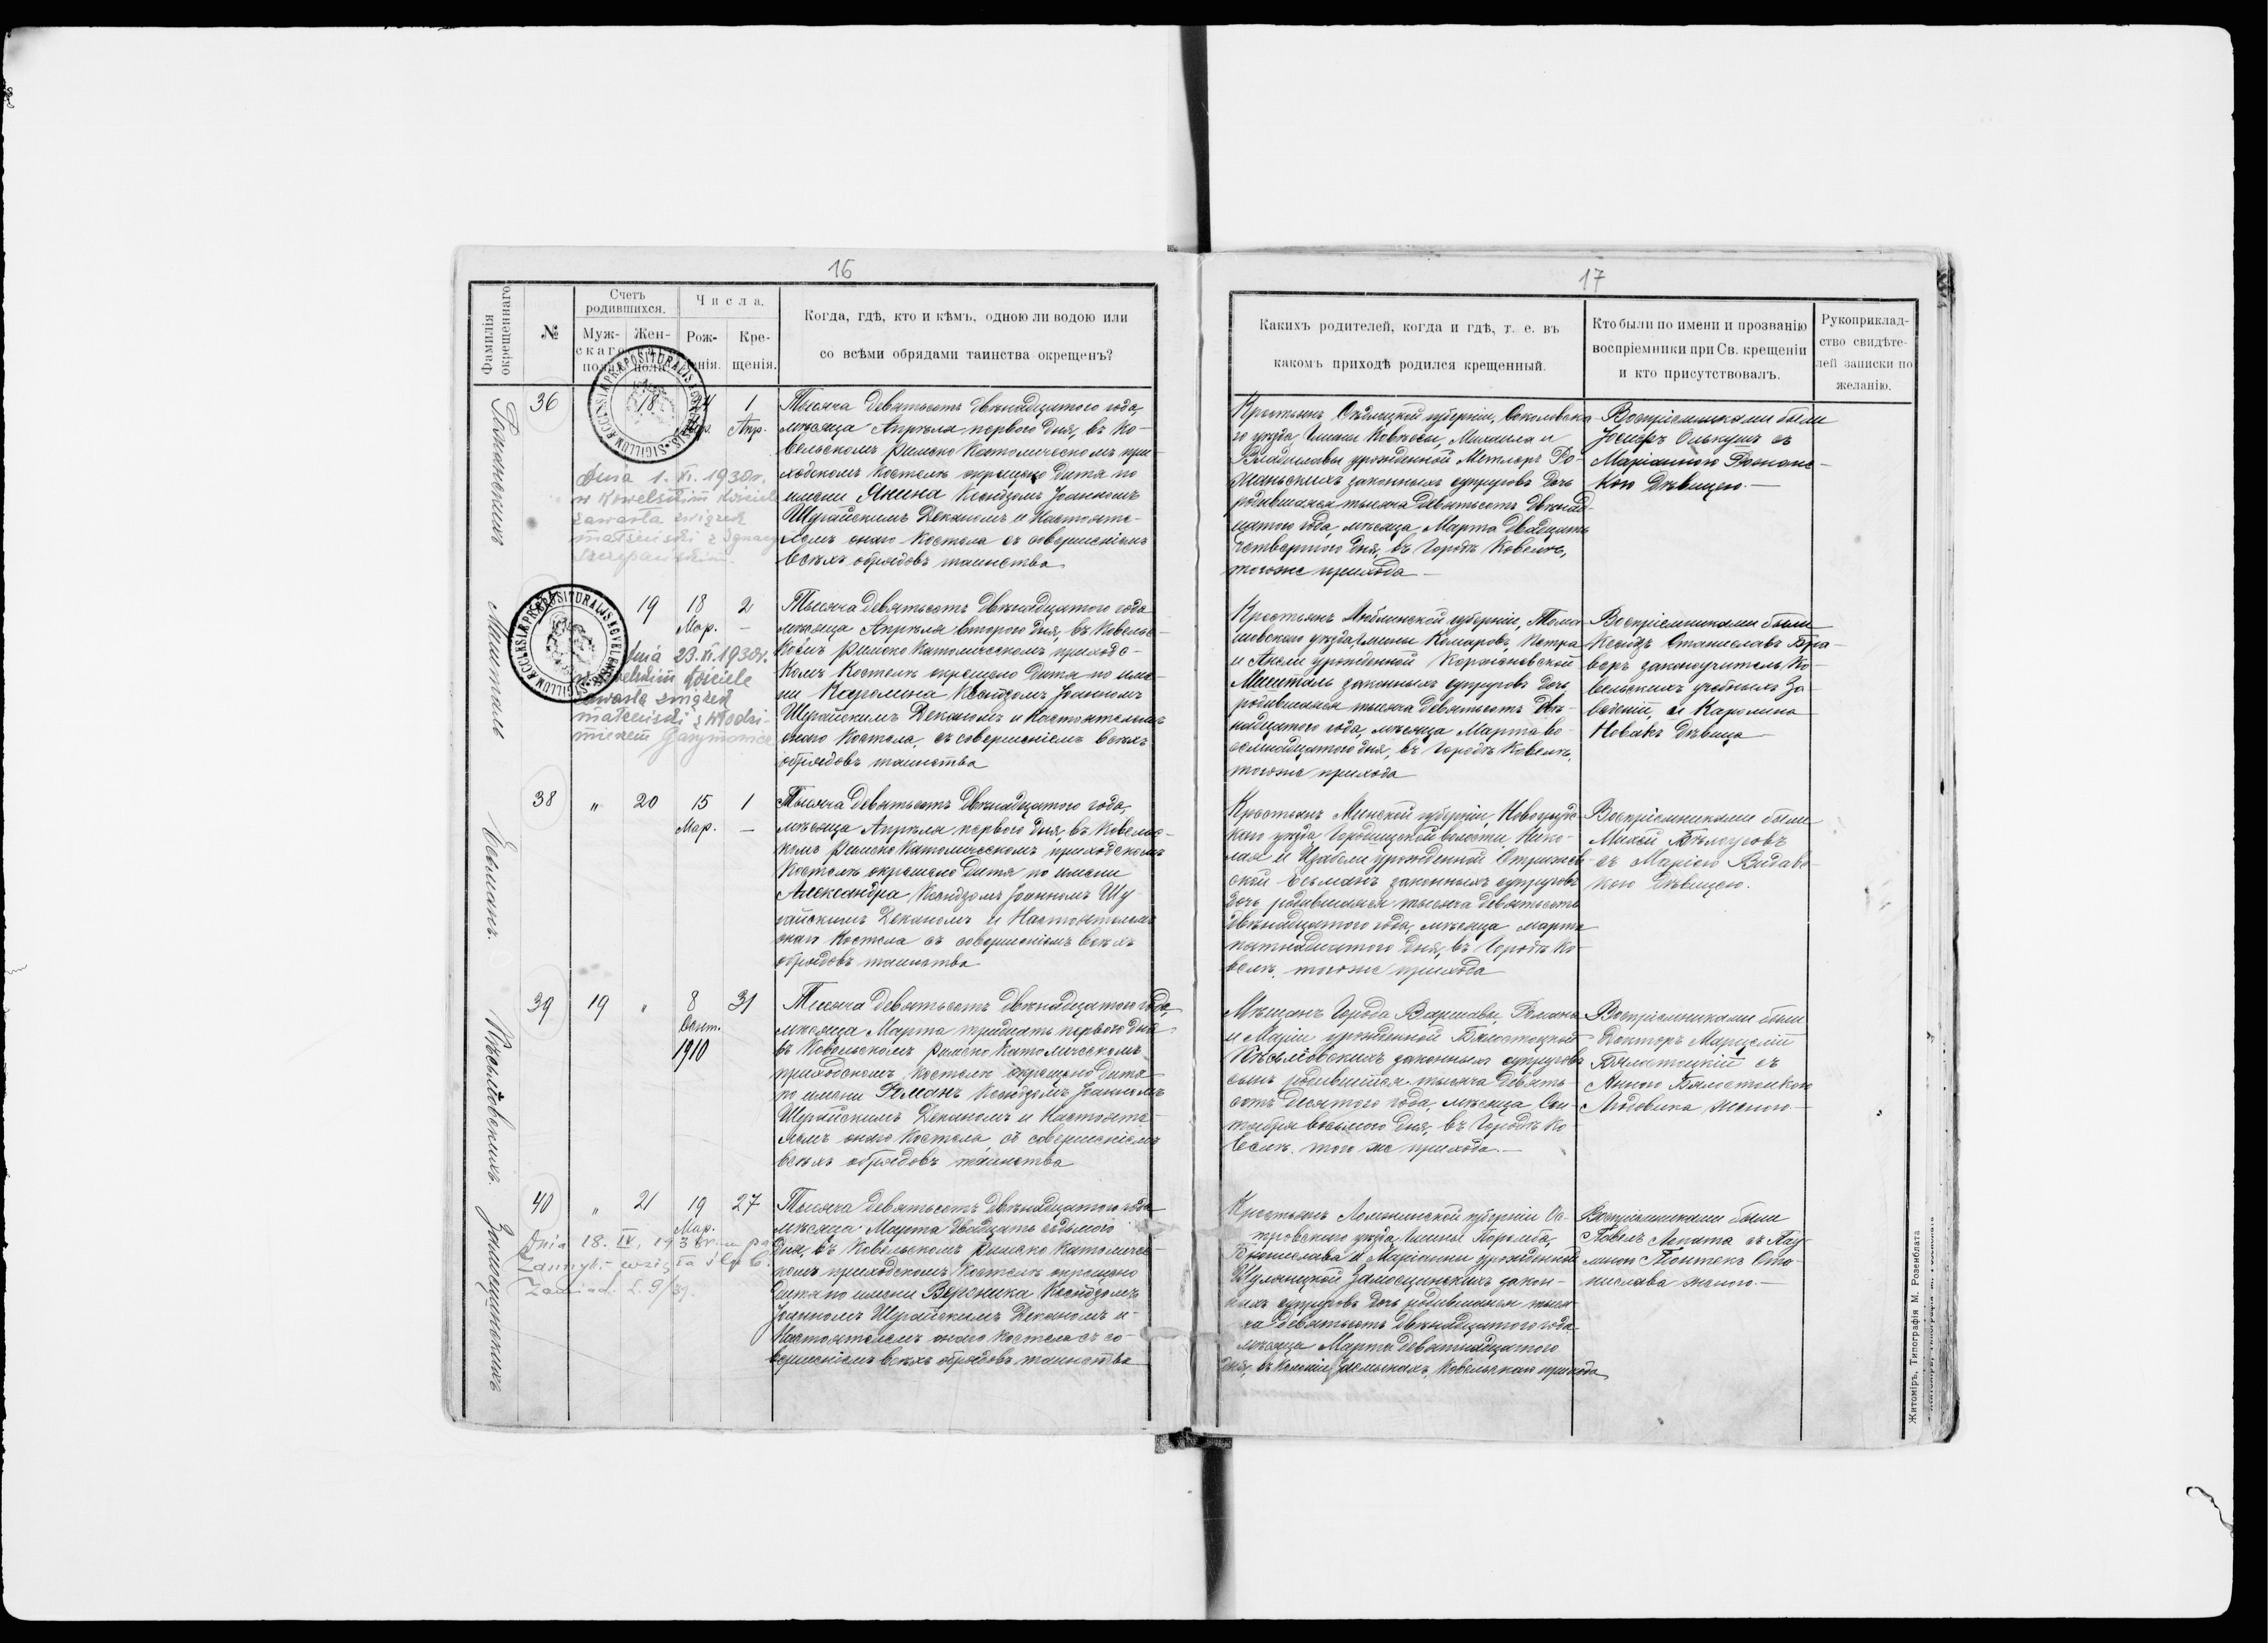 16
Фамилія окрещеннаго
№
Счетъ родившихся.
Муж-скаго пола
Жен-
пола
Числа.
Рож-
денія.
Кре-
щенія.
Когда, гдѣ, кто и кѣмъ, одною ли водою или
со всѣми обрядами таинства окрещенъ?
36
18
24
Мар.
1
Апр.
Тысяча девятьсотъ двѣнадцатого года,
мѣсяца Апрѣля перваго дня, въ Ко-
вельскомъ Римско Католическомъ при-
ходскомъ Костелѣ окрещено дитя по
имени Янина Ксендзомъ Іоанномъ
Шурайскимъ Деканомъ и Настояте-
лемъ онаго Костела съ совершеніемъ
всѣхъ обрядовъ таинства
Dnia 1. XI. 1930r.
w Kowelskim kościele
zawarła związek
małżeński z Ignacym
Szczepańskim.
SIGILLUM ECCLESIÆ PRÆPOSITURALIS KOVELENSIS
Мишталь
19
18
Мар.
2
—
Тысяча девятьсотъ двѣнадцатого года
мѣсяца Апрѣля второго дня, въ Ковельс-
комъ Римско Католическомъ приходс-
комъ Костелѣ окрещено дитя по име-
ни Каролина Ксендзомъ Іоанномъ
Шурайскимъ Деканомъ и Настоятелемъ
онаго Костела, съ совершеніемъ всѣхъ
обрядовъ таинства
dnia 23. XI. 1930r.
kościele
zawarła związek
małżeński z Włodzi-
mierzem
SIGILLUM ECCLESIÆ PRÆPOSITURALIS KOVELENSIS
38
"
20
15
Мар.
1
—
Тысяча девятьсотъ двѣнадцатого года,
мѣсяца Апрѣля перваго дня, въ Ковельс-
комъ Римско Католическомъ приходскомъ
Костелѣ окрещено дитя по имени
Александра Ксендзомъ Іоанномъ Шу-
райскимъ Деканомъ и Настоятелемъ
онаго Костела съ совершеніемъ всѣхъ
обрядовъ таинства
39
19
"
8
Сент.
1910
31
Тысяча девятьсотъ двѣнадцатого года,
мѣсяца Марта тридцать перваго дня
въ Ковельскомъ Римско Католическомъ
приходскомъ Костелѣ окрещено дитя
по имени Романъ Ксендзомъ Іоанномъ
Шурайскимъ Деканомъ и Настояте-
лемъ онаго Костела, съ совершеніемъ
всѣхъ обрядовъ таинства
Замощинскихъ
40
"
21
19
Мар.
27
Тысяча девятьсотъ двѣнадцатого года
мѣсяца Марта двадцать седьмого
дня, въ Ковельскомъ Римско Католичес-
комъ приходскомъ Костелѣ окрещено
дитя по имени Вероника Ксендзомъ
Іоанномъ Шурайскимъ Деканомъ и
Настоятелемъ онаго Костела съ со-
вершеніемъ всѣхъ обрядовъ таинства
Dnia 18. IV. 193
wzięła ślub
17
Какихъ родителей, когда и гдѣ, т. е. въ
какомъ приходѣ родился крещенный.
Кто были по имени и прозванію
воспріемники при Св. крещеніи
и кто присутствовалъ.
Рукоприклад-
ство свидѣте-
лей записки по
желанію.
Крестьянъ Сѣдлецкой губерніи, Соколовска-
го уѣзда Гмины Михаила и
Владиславы урожденной Метлеръ Ро-
законныхъ супруговъ дочь
родившаяся тысяча девятьсотъ двѣнад-
цатого года, мѣсяца Марта двадцать
четвертого дня, въ Городѣ Ковелѣ,
тогоже прихода —
Воспріемниками были
Іосифъ съ
Маріанною
Дѣвицею. —
Крестьянъ Люблинской губерніи, Тома-
шовскаго уѣзда, Гмины Комаровъ, Петра
и урожденной
Мишталь законныхъ супруговъ дочь
родившаяся тысяча девятьсотъ двѣ-
надцатого года, мѣсяца Марта во-
семнадцатого дня, въ Городѣ Ковелѣ,
тогоже прихода
Воспріемниками были
Ксендзъ Станиславъ
законоучитель Ко-
вельскихъ учебныхъ за-
веденій, и Каролина
Новакъ Дѣвица
Крестьянъ Минской губерніи, Новогрудс-
каго уѣзда волости Нико-
лая и Изабели урожденной
законныхъ супруговъ
дочь родившаяся тысяча девятьсотъ
двѣнадцатого года, мѣсяца Марта
пятнадцатого дня, въ Городѣ Ко-
велѣ, тогоже прихода
Воспріемниками были
съ Маріею
Дѣвицею.
Мѣщанъ Города Варшавы Романа
и Маріи урожденной Бялостоцкой
законныхъ супруговъ
сынъ родившійся тысяча девять-
сотъ десятого года, мѣсяца Сен-
тября восьмого дня, въ Городѣ Ко-
велѣ, того же прихода. —
Воспріемниками были
Докторъ Марцелій
Бялостоцкій съ
Анною Бялостоцкою
Людовика женою. —
Крестьянъ Ломжинской губерніи Ос-
тровскаго уѣзда, Гмины Поремба,
Бронислава и Маріанны урожденной
Замощинскихъ закон-
ныхъ супруговъ дочь родившаяся тыся-
ча девятьсотъ двѣнадцатого года
мѣсяца Марта девятнадцатого
дня, въ Колоніи Ковельскаго прихода
Воспріемниками были
Павелъ съ Пау-
линою Ста-
нислава женою. —
Житоміръ, Типографія М. Розенблата